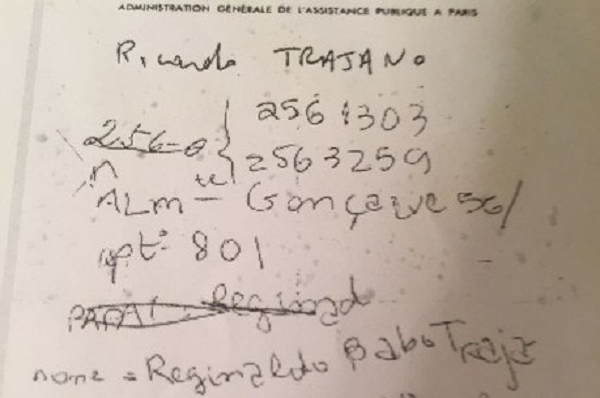 ADMINISTRATION GÉNÉRALE DE L'ASSISTANCE PUBLIQUE A PARIS
Ricardo TRAJANO
256 1303
256-0
256 3259
n
te
ALM - Gonçalve 56/
apt: 801
PAPAI Reginald
nome = Reginaldo Babo Traja